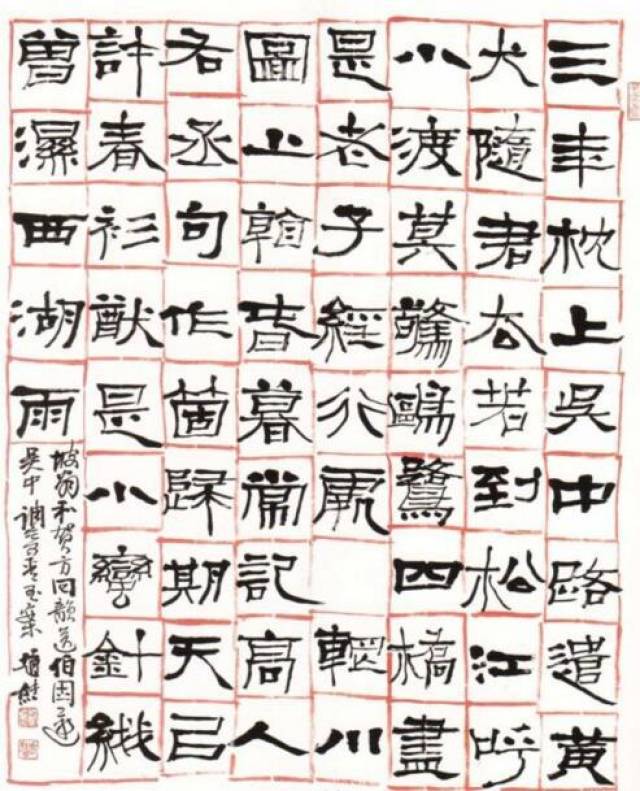 三年枕上吳中路遣黃
犬隨君去若到松江呼
小渡莫驚鷗鷺四橋盡
是老子經行處 輞川
圖上看春暮常記高人
右丞句作箇歸期天已
許春衫猶是小蠻針綫
曾濕西湖雨
坡翁和賀方回韻送伯固
吳中調寄青玉案